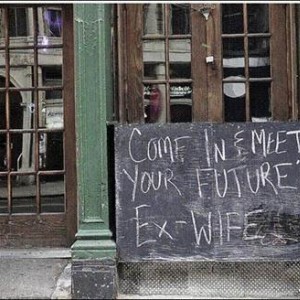 COME IN & MEET
YOUR FUTURE
EX-WIFE